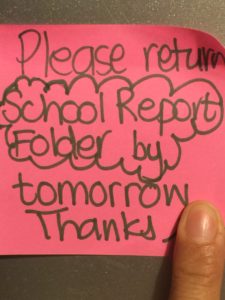 Please return
School Report
Folder by
tomorrow
Thanks